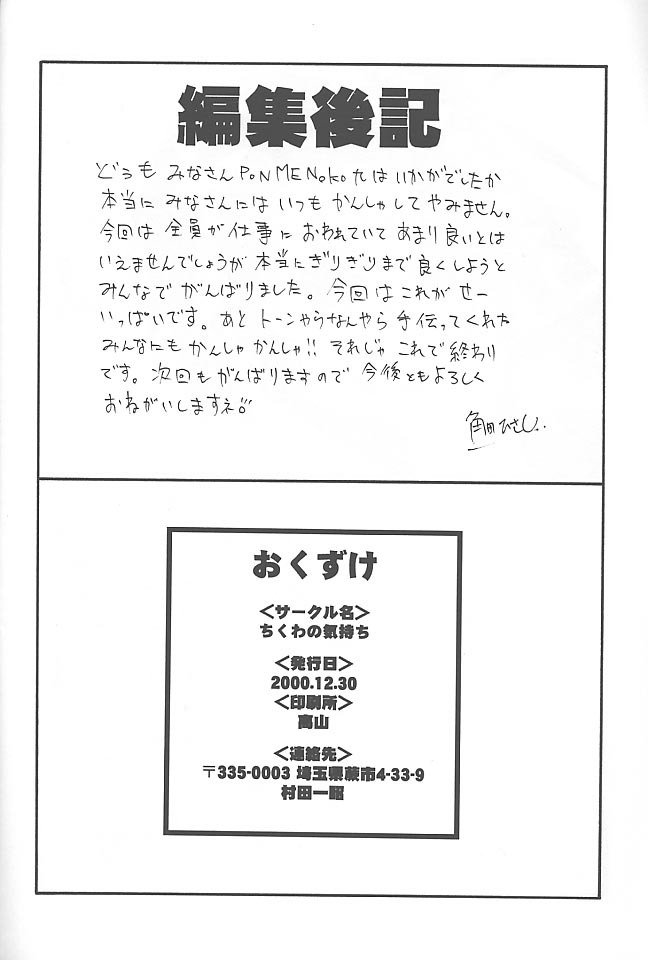 編集後記
どうも みなさん PONMENOKO 九は いかがでしたか
本当に みなさんには いつも かんしゃしてやみません。
今回は 全員が 仕事に おわれていて あまり 良いとは
いえませんでしょうが 本当に ぎりぎりまで 良くしようと
みんなで がんばりました。今回は これが せー
いっぱいです。あと トーンやらなんやら 手伝ってくれた
みんなにも かんしゃ かんしゃ!! それじゃ これで 終わり
です。次回も がんばりますので 今後ともよろしく
おねがいしますネ
角田ひさし..
おくずけ
＜サークル名＞
ちくわの気持ち
＜発行日＞
2000.12.30
＜印刷所＞
高山
＜連絡先＞
〒335-0003 埼玉県蕨市4-33-9
村田一昭